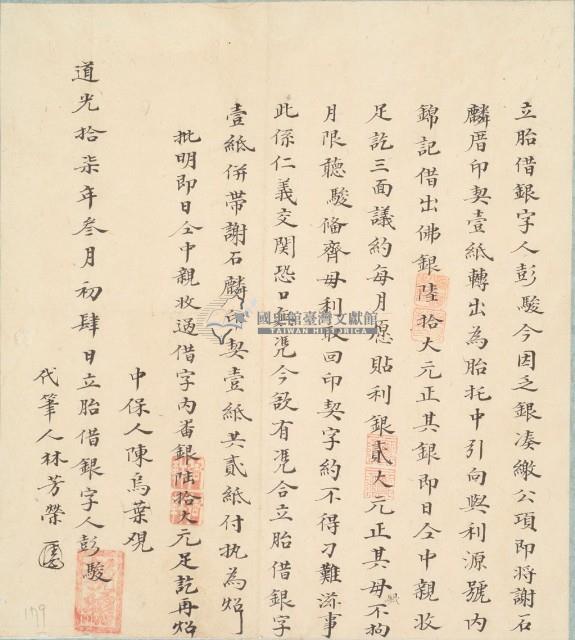 立胎借銀字人彭駿今因乏銀凑繳公項即將謝石
麟厝印契壹紙轉出為胎托中引向與利源號內
錦記借出佛銀陸拾大元正其銀即日仝中親收
足訖三面議約每月愿貼利銀貳大元正其母不拘
月限聽駿偹齊母利取回印契字約不得刁難滋事
此係仁義交関恐口無凴今欲有凴合立胎借銀字
壹紙併帶謝石麟印契壹紙共貳紙付执為炤
批明即日仝中親收過借字內畨銀陆拾大元足訖再炤
中保人陳烏葉
道光拾柒年叁月初肆日立胎借銀字人彭駿
代筆人林芳榮
國史館臺灣文獻館
TAIWAN HISTORICA
179